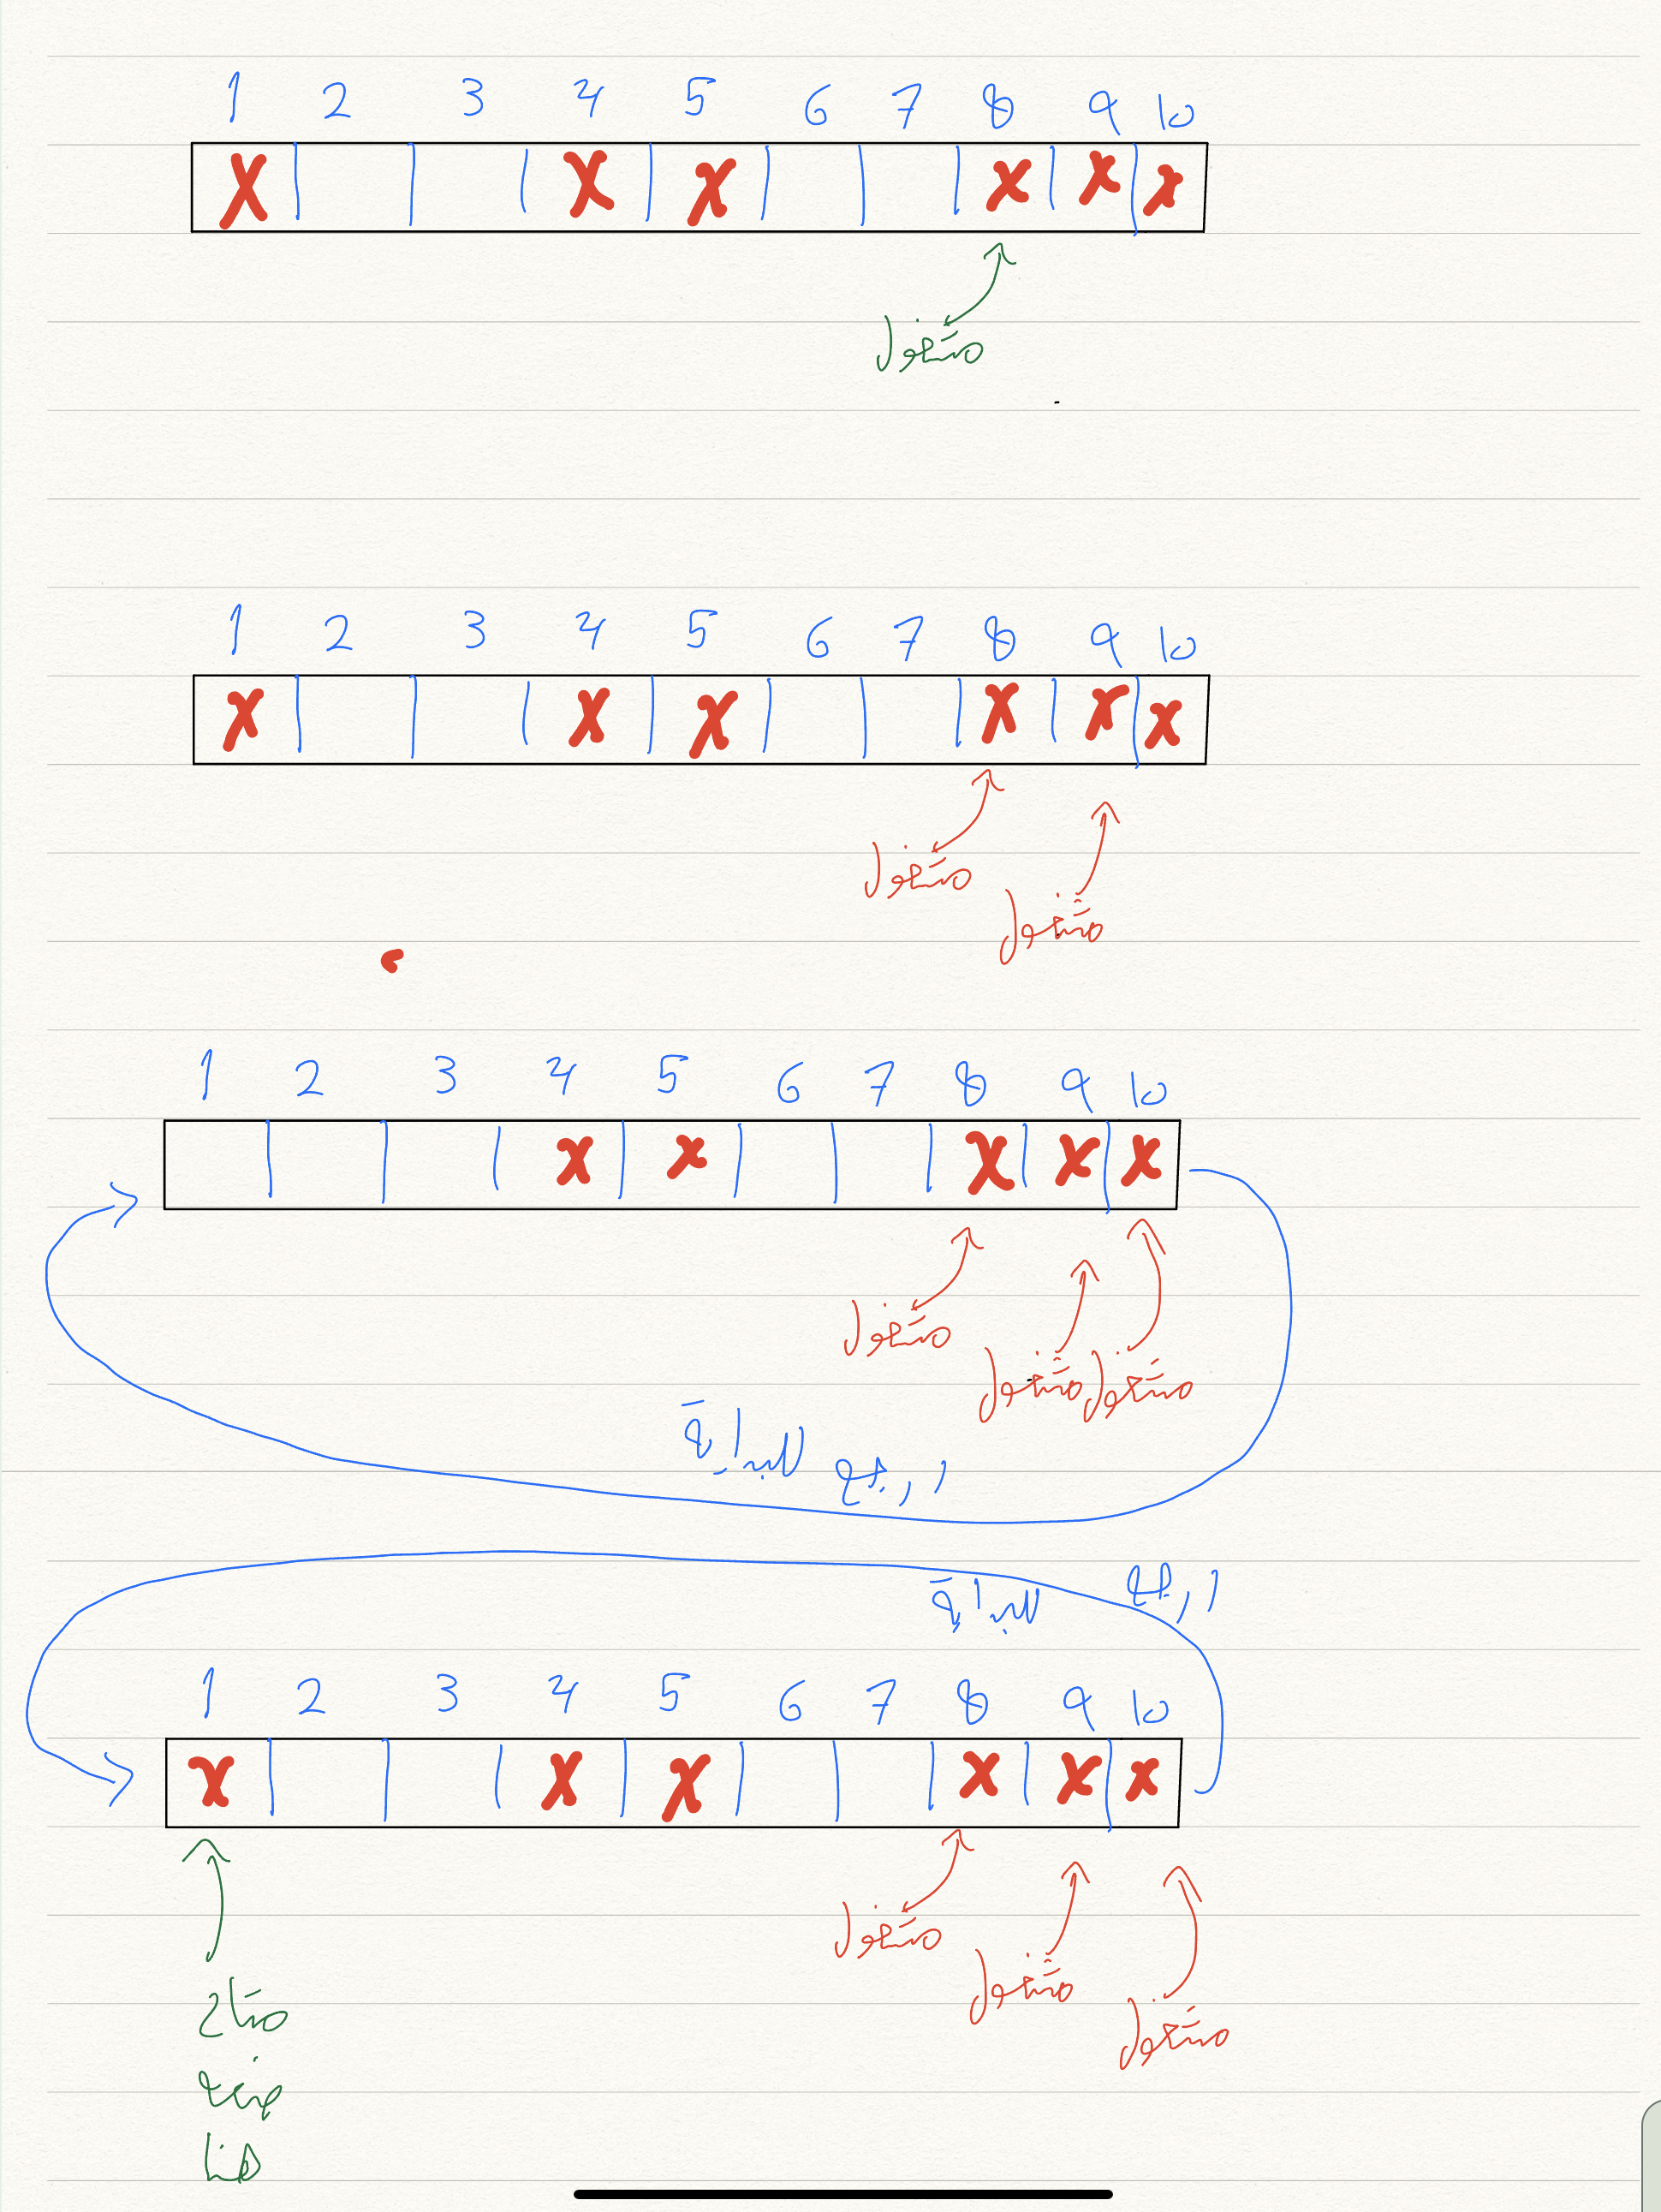 1 2 3 4 5 6 7 8 9 10
X X X X X X
مشغول
1 2 3 4 5 6 7 8 9 10
X X X X X X
مشغول
مشغول
1 2 3 4 5 6 7 8 9 10
X X X X X
مشغول
مشغول مشغول
ارجع للبداية
ارجع للبداية
1 2 3 4 5 6 7 8 9 10
X X X X X X
مشغول
مشغول
مشغول
متاح
ضيفه
هنا